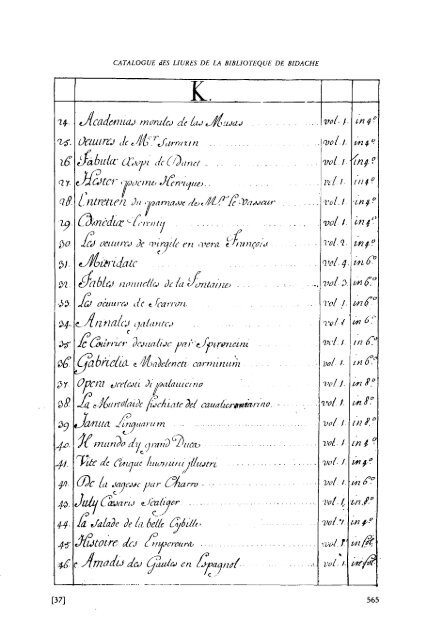 CATALOGUE dES LIURES DE LA BIBLIOTEQUE DE BIDACHE
K.
24. Academias morales de las Musas vol. 1. in 4º
25. Oeuures de Mr Sarrazin vol. 1. in 4º
26 Fabulæ Æsopi de Danet vol. 1. in 4º
27. Hester poeme Heroique vol. 1. in 4º
28. Entretien du parnasse de Mr Le Vasseur vol. 1. in 4º
29 Comediæ Terenty vol. 1. in 4º
30 Les oeuures de virgile en vers François vol. 2. in 4º
31. Mitridate vol. 4. in 6º
32 Fables nouuelles de la Fontaine vol. 3. in 6º
33. Les oeuures de Scarron vol. 1. in 6º
34. Annales galantes vol. 1. in 6º
35 Le Courrier desualise par Spironcini vol. 1. in 6º
36 Gabrielia Madeleneti carminum vol. 1. in 6º
37 Opera scelesti di palauicino vol. 1. in 8º
38. La Murtoleide fischiate del caualier marino. vol. 1. in 8º
39 Janua Linguarum vol. 1. in 8º
40. Il mundo dy grand Duca vol. 1. in 4º
41. Vite de Cinque huomini Illustri vol. 1. in 4º
42. De la sagesse par Charro vol. 1. in 6º
43. July Cæsaris Scaliger vol. 1. in 8º
44. La Salade de la belle Cybille vol. 1. in 4º
45 Histoire des Empereurs vol. 1. in fol.
46 Amadis des Gaules en Espagnol vol. 1. in fol.
[37] 565